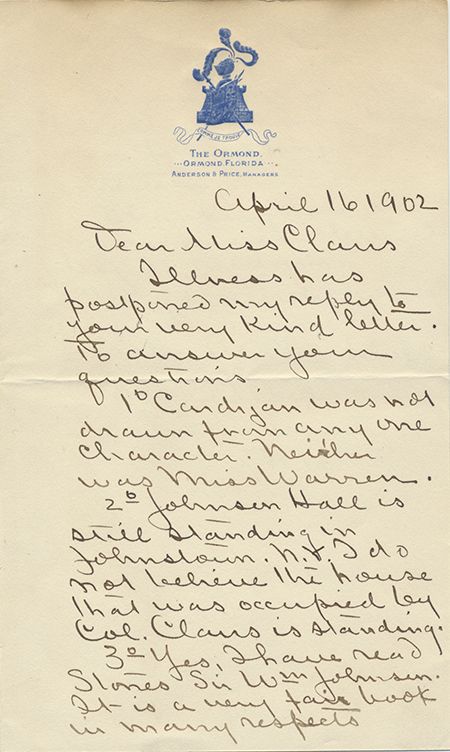 THE ORMOND.
ORMOND, FLORIDA
ANDERSON & PRICE, MANAGERS
April 16 1902
Dear Miss Claus
Illness has
postponed my reply to
your very kind letter.
To answer your
questions
1º Cardigan was not
drawn from any one
character. Neither
was Miss Warren.
2º Johnson Hall is
still standing in
Johnstown. N.Y. I do
not believe the house
that was occupied by
Col. Claus is standing.
3º Yes, I have read
Stones Sir Wm Johnson.
It is a very fair book
in many respects